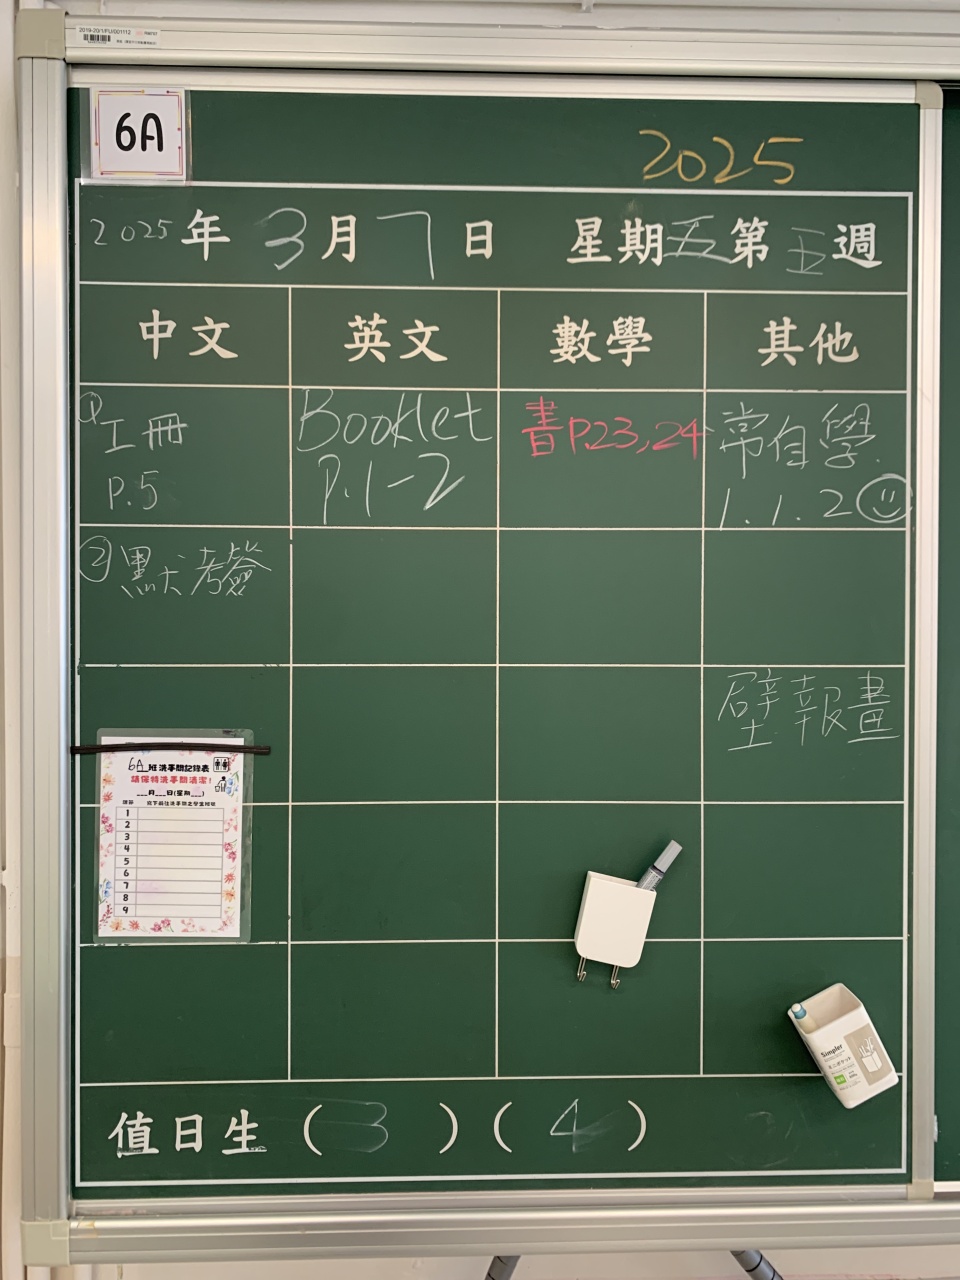 2019-20/1/FU/001112
6A
2025
2025年3月7日 星期五第五週
中文 英文 數學 其他
① 工冊
P.5
Booklet
P.1-2
書P.23,24
常自學
1.1.2
② 默考簽
壁報畫
6A班洗手間記錄表
請保持洗手間清潔!
___月___日(星期___)
1
2
3
4
5
6
7
8
9
Simpler
ミニポケット
值日生(3)(4)